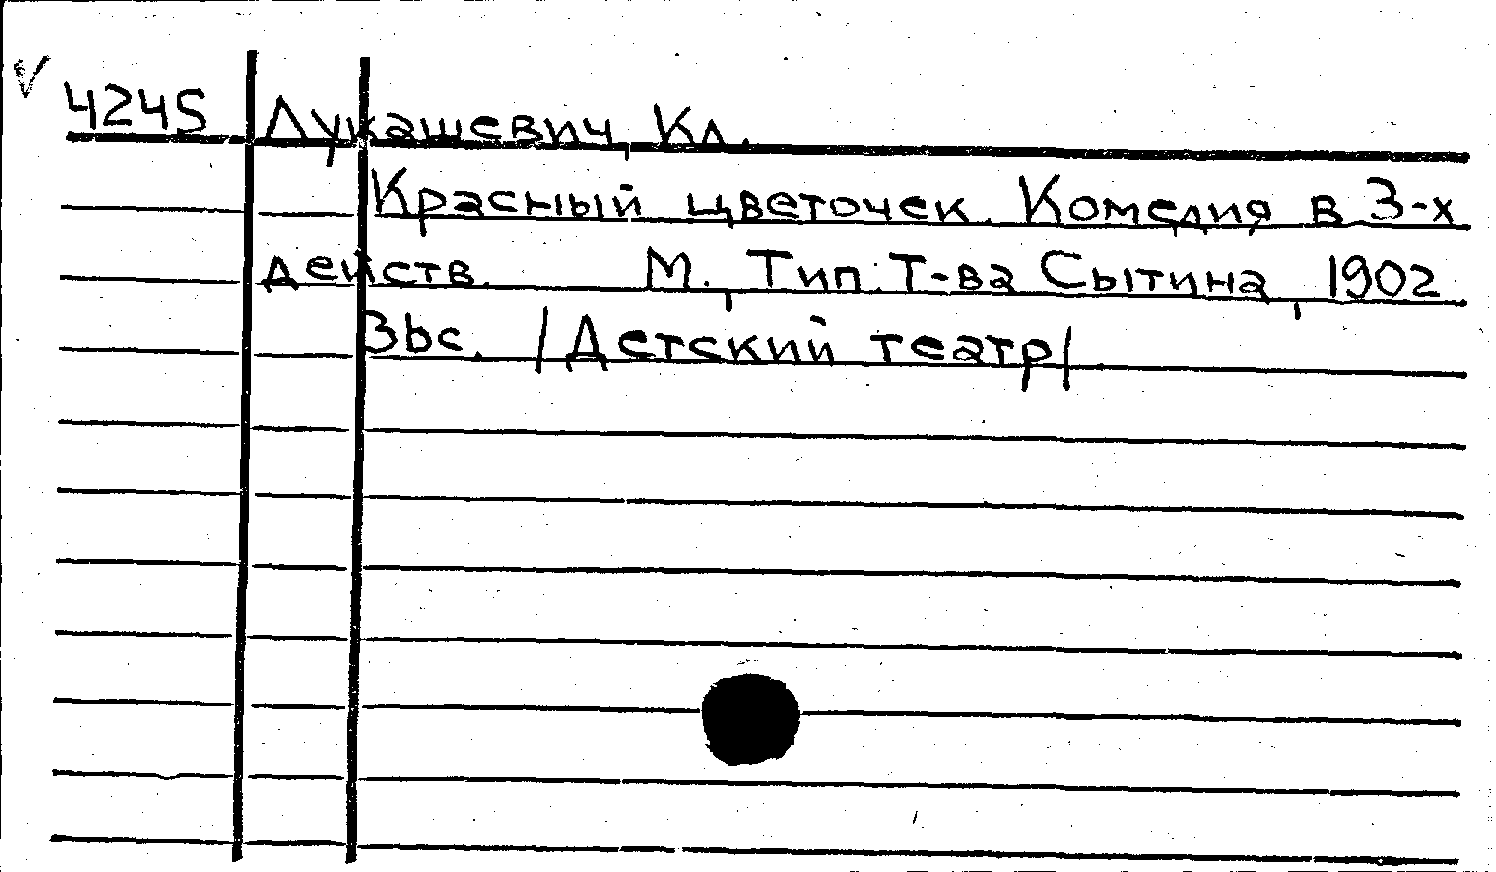 4245 Лукашевич, Кл.
Красный цветочек. Комедия в 3-х
действ. М., Тип. Т-ва Сытина, 1902
36с. /Детский театр/